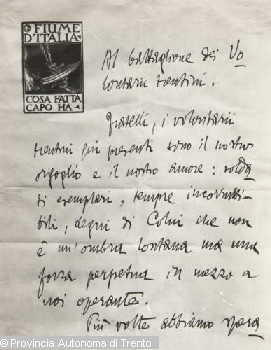 FIUME
D'ITALIA
COSA FATTA
CAPO HA
Al battaglione dei Vo
lontari trentini.
Fratelli, i volontarii
trentini già presenti sono il nostro
orgoglio e il nostro amore: solda
ti esemplari, sempre incorrutti-
bili, degni di Colui che non
è un'ombra lontana ma una
forza perpetua in mezzo a
noi operante.
Più volte abbiamo spera
© Provincia Autonoma di Trento